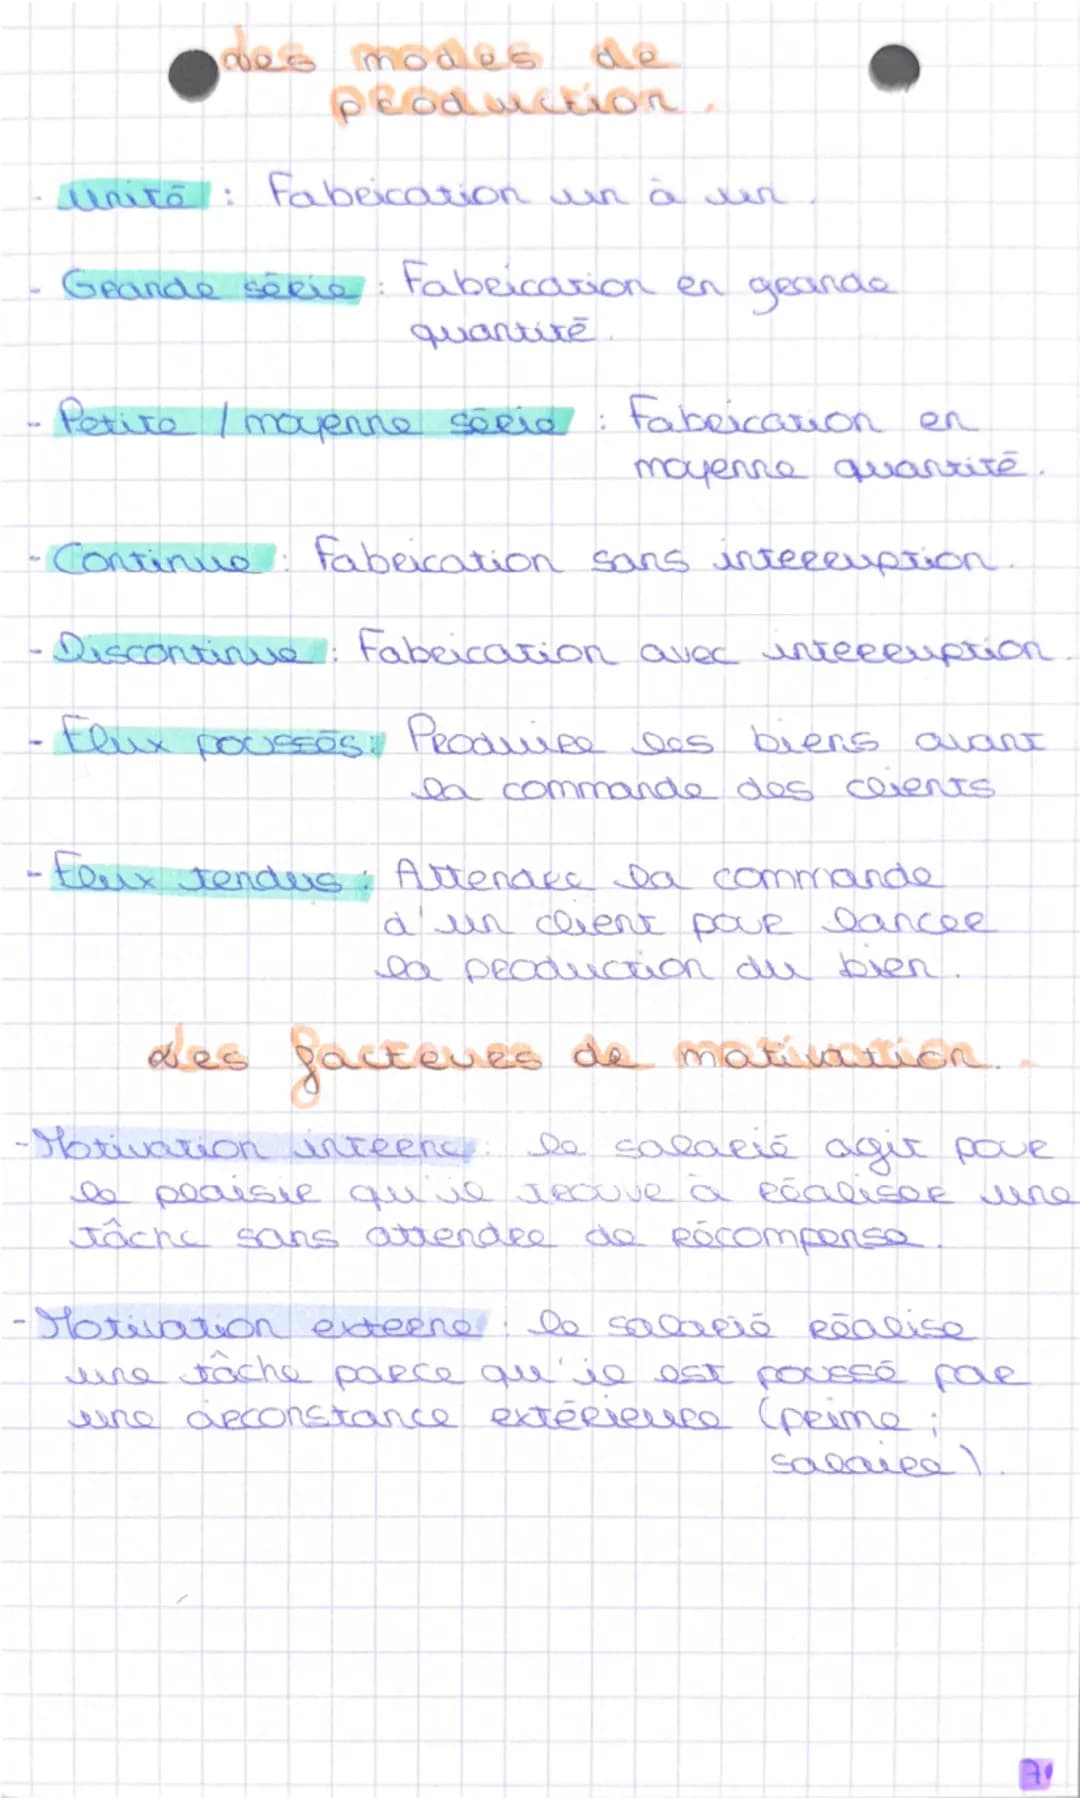 Les modes de
production.
- Unité : Fabrication un à un.
- Grande série : Fabrication en grande
quantité.
- Petite / moyenne série : Fabrication en
moyenne quantité.
- Continue : Fabrication sans interruption.
- Discontinue : Fabrication avec interruption.
- Flux poussés : Produire les biens avant
la commande des clients
- Flux tendus : Attendre la commande
d'un client pour lancer
la production du bien.
Les facteurs de motivation.
- Motivation interne : le salarié agit pour
le plaisir qu'il trouve à réaliser une
tâche sans attendre de récompense.
- Motivation externe : le salarié réalise
une tâche parce qu'il est poussé par
une circonstance extérieure (prime ;
salaire).